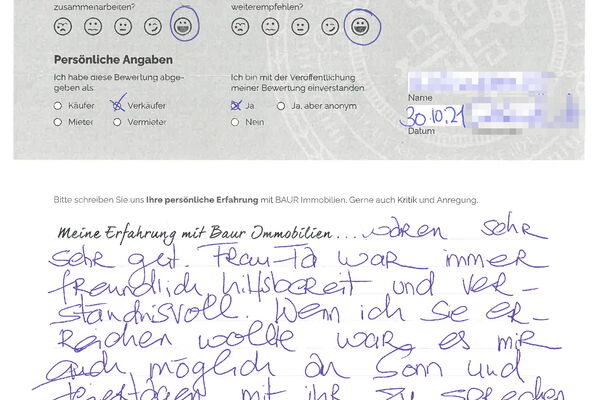 zusammenarbeiten?
weiterempfehlen?
Persönliche Angaben
Ich habe diese Bewertung abge-
geben als:
Käufer
Verkäufer
Mieter
Vermieter
Ich bin mit der Veröffentlichung
meiner Bewertung einverstanden.
Ja
Ja, aber anonym
Nein
Name
30.10.21
Datum
Bitte schreiben Sie uns Ihre persönliche Erfahrung mit BAUR Immobilien. Gerne auch Kritik und Anregung.
Meine Erfahrung mit Baur Immobilien... waren sehr
sehr gut. Frau Ta war immer
freundlich, hilfsbereit und ver-
ständnisvoll. Wenn ich Sie er-
reichen wollte war es mir
auch möglich an Sonn und
feiertagen mit ihr zu sprechen